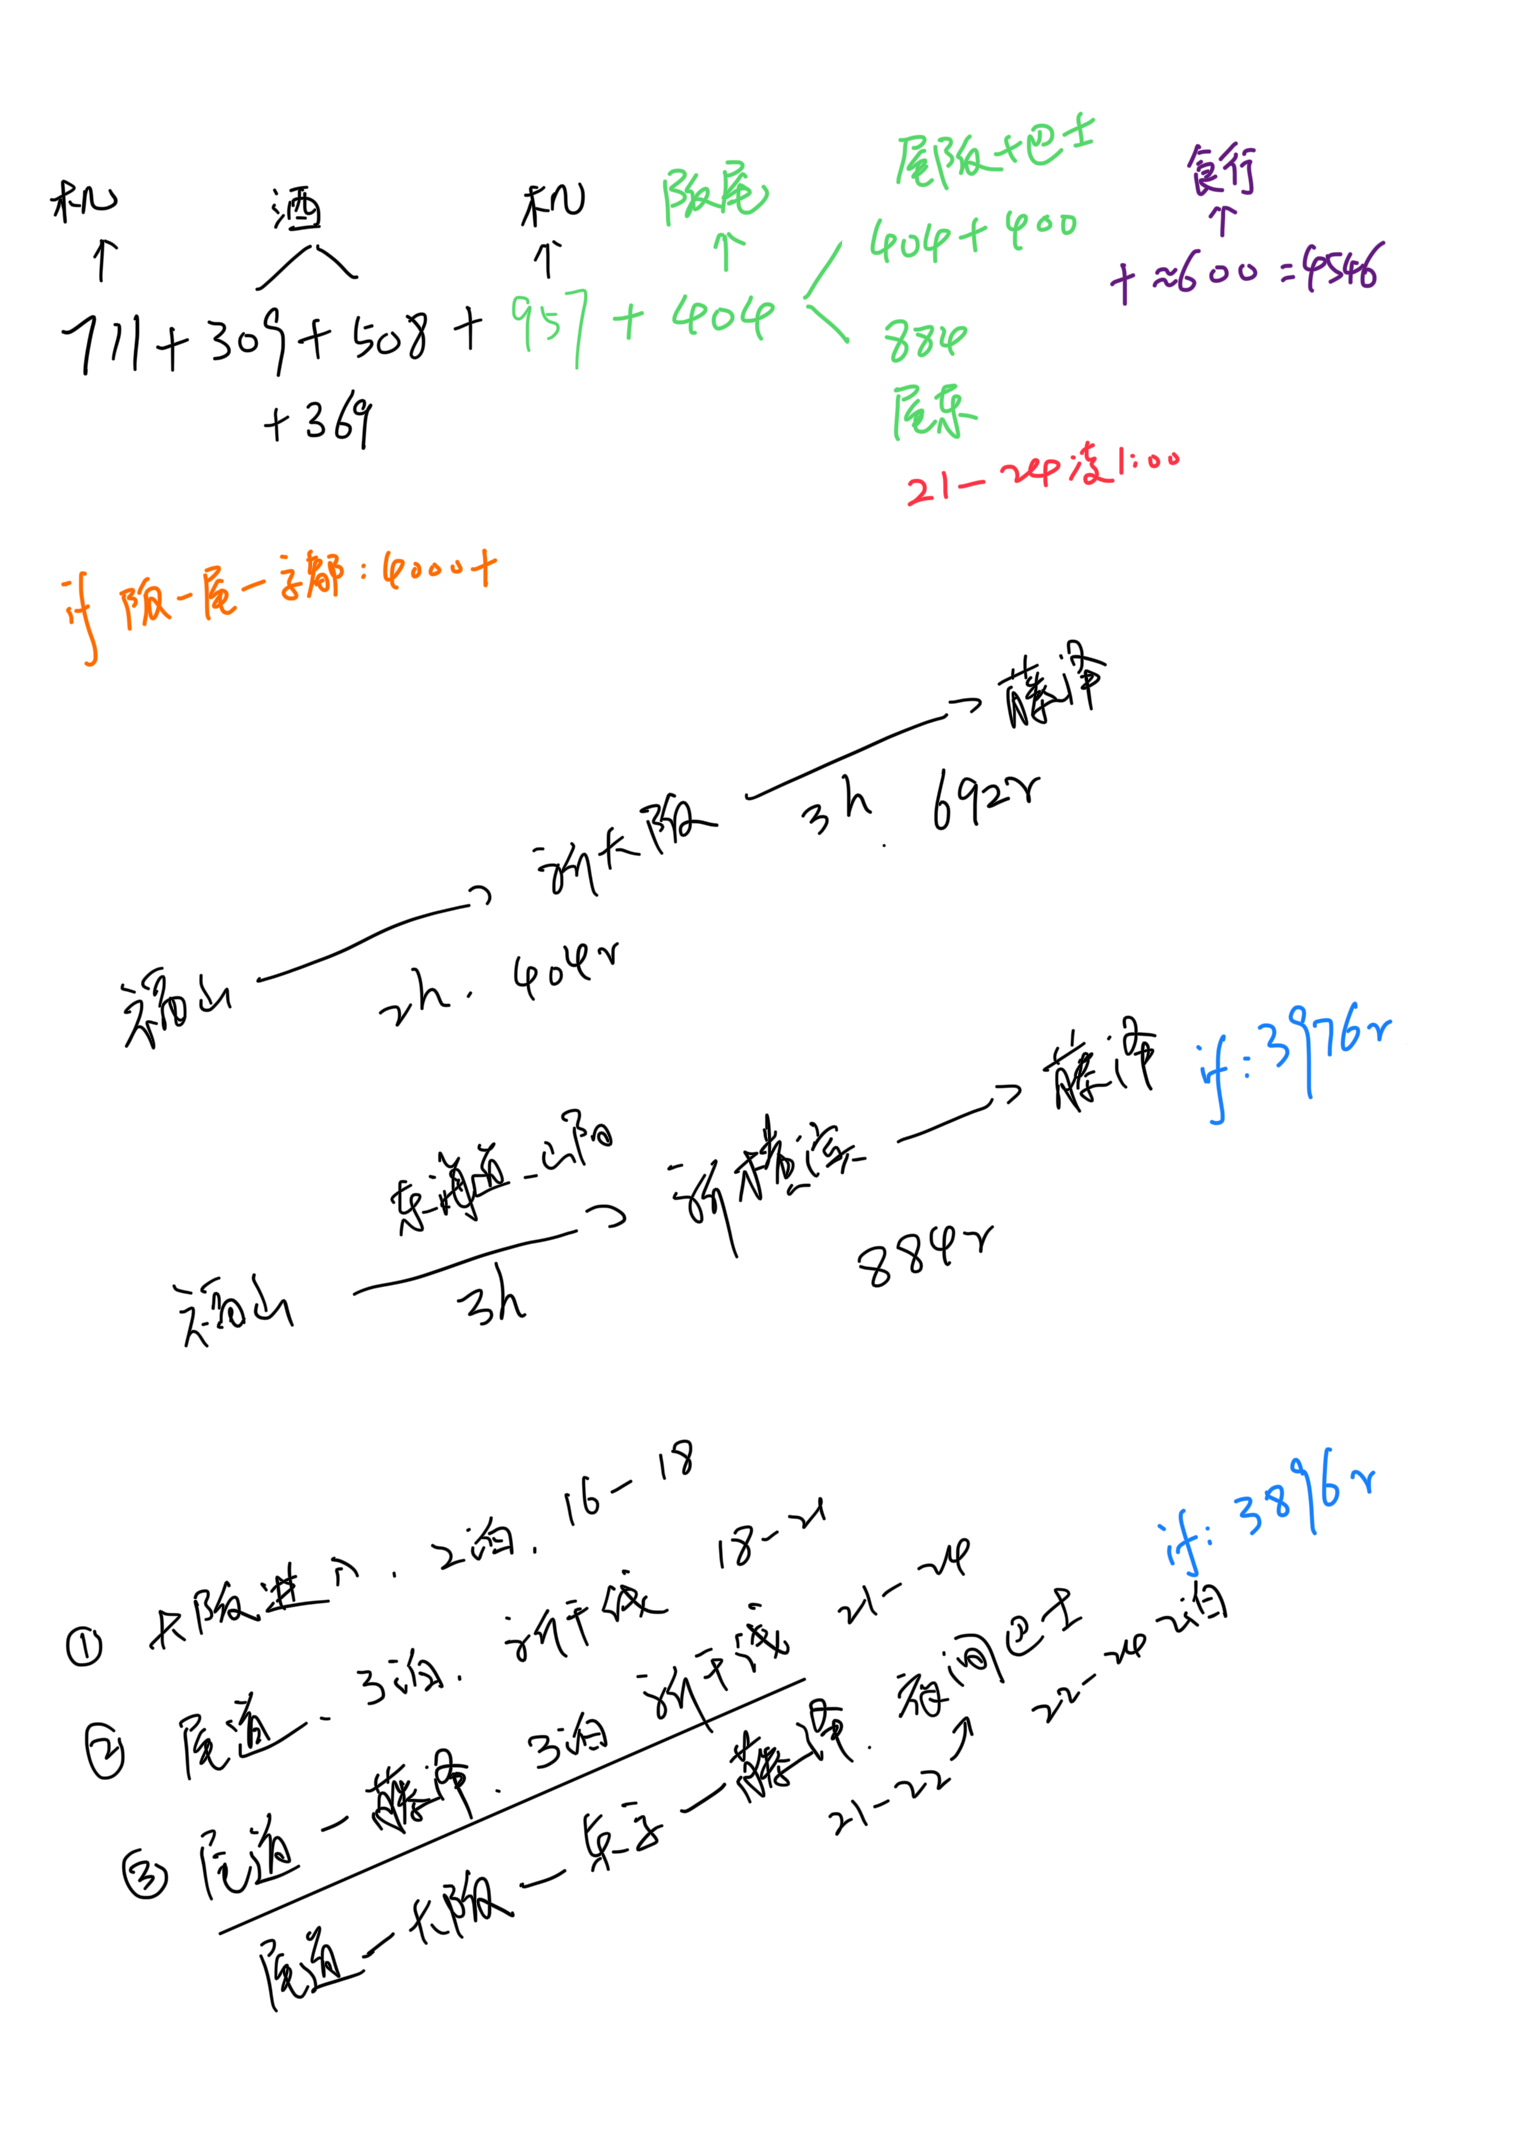 机 酒 机 阪尾 尾阪+巴士 食行
↑ ↑ ↑ 404+400 ↑
711+309+508+957+404 +≈600=4546
884
+369 尾东
21-24凌1:00
if 阪-尾-京都:4000+
藤泽
3h. 692r
新大阪
福山 2h. 404r
if:3976r
藤泽
东海道-山阳 新横滨
福山 3h 884r
if:3896r
① 大阪进入. 2泊. 16-18
② 尾道. 3泊. 新干线 18-21
③ 尾道-藤泽. 3泊 新干线 21-24
尾道-大阪-东京-藤泽. 夜间巴士
21-22↗ 22-24 2泊